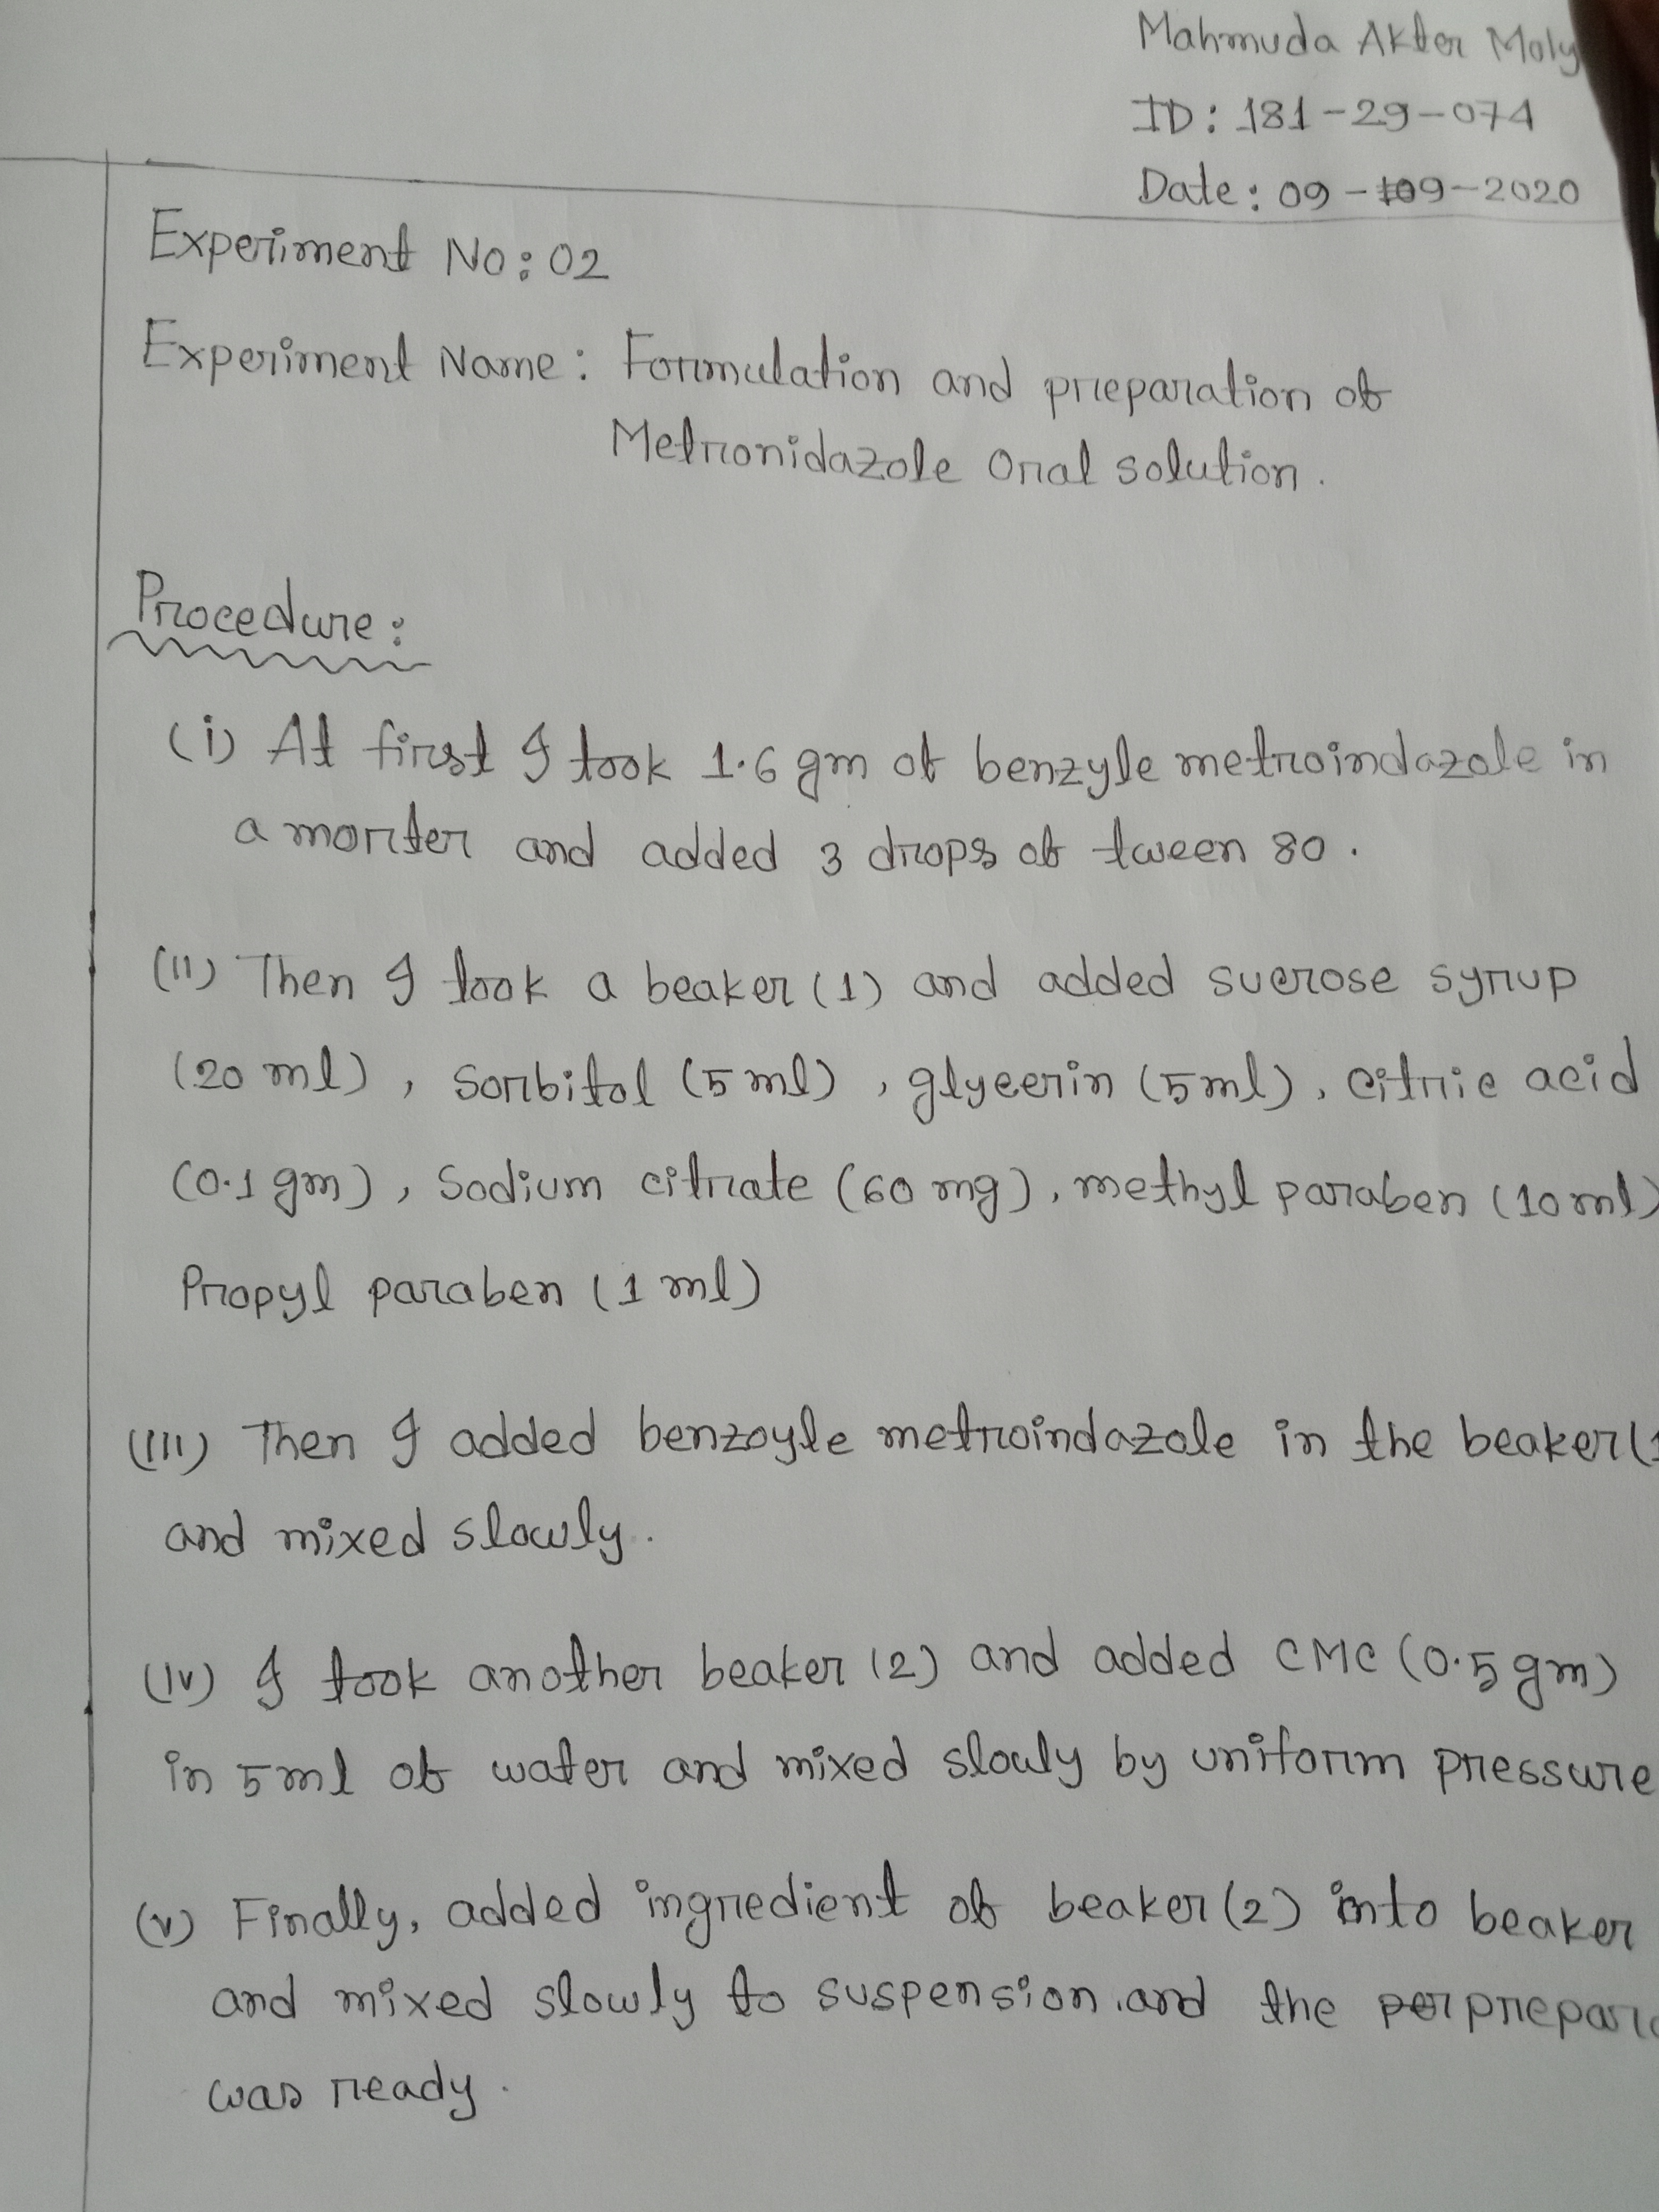 Mahmuda Akter Moly
ID: 181-29-074
Date: 09-09-2020
Experiment No: 02
Experiment Name: Formulation and preparation of
Metronidazole Oral solution.
Procedure:
(i) At first I took 1.6 gm of benzyle metroindazole in
a morter and added 3 drops of tween 80.
(II) Then I took a beaker (1) and added sucrose syrup
(20 ml), Sorbitol (5 ml), glycerin (5 ml), citric acid
(0.1 gm), Sodium citrate (60 mg), methyl paraben (10 ml)
Propyl paraben (1 ml)
(III) Then I added benzoyle metroindazole in the beaker (1
and mixed slowly.
(IV) I took another beaker (2) and added CMC (0.5 gm)
in 5 ml of water and mixed slowly by uniform pressure
(V) Finally, added ingredient of beaker (2) into beaker
and mixed slowly to suspension and the prepara
was ready.